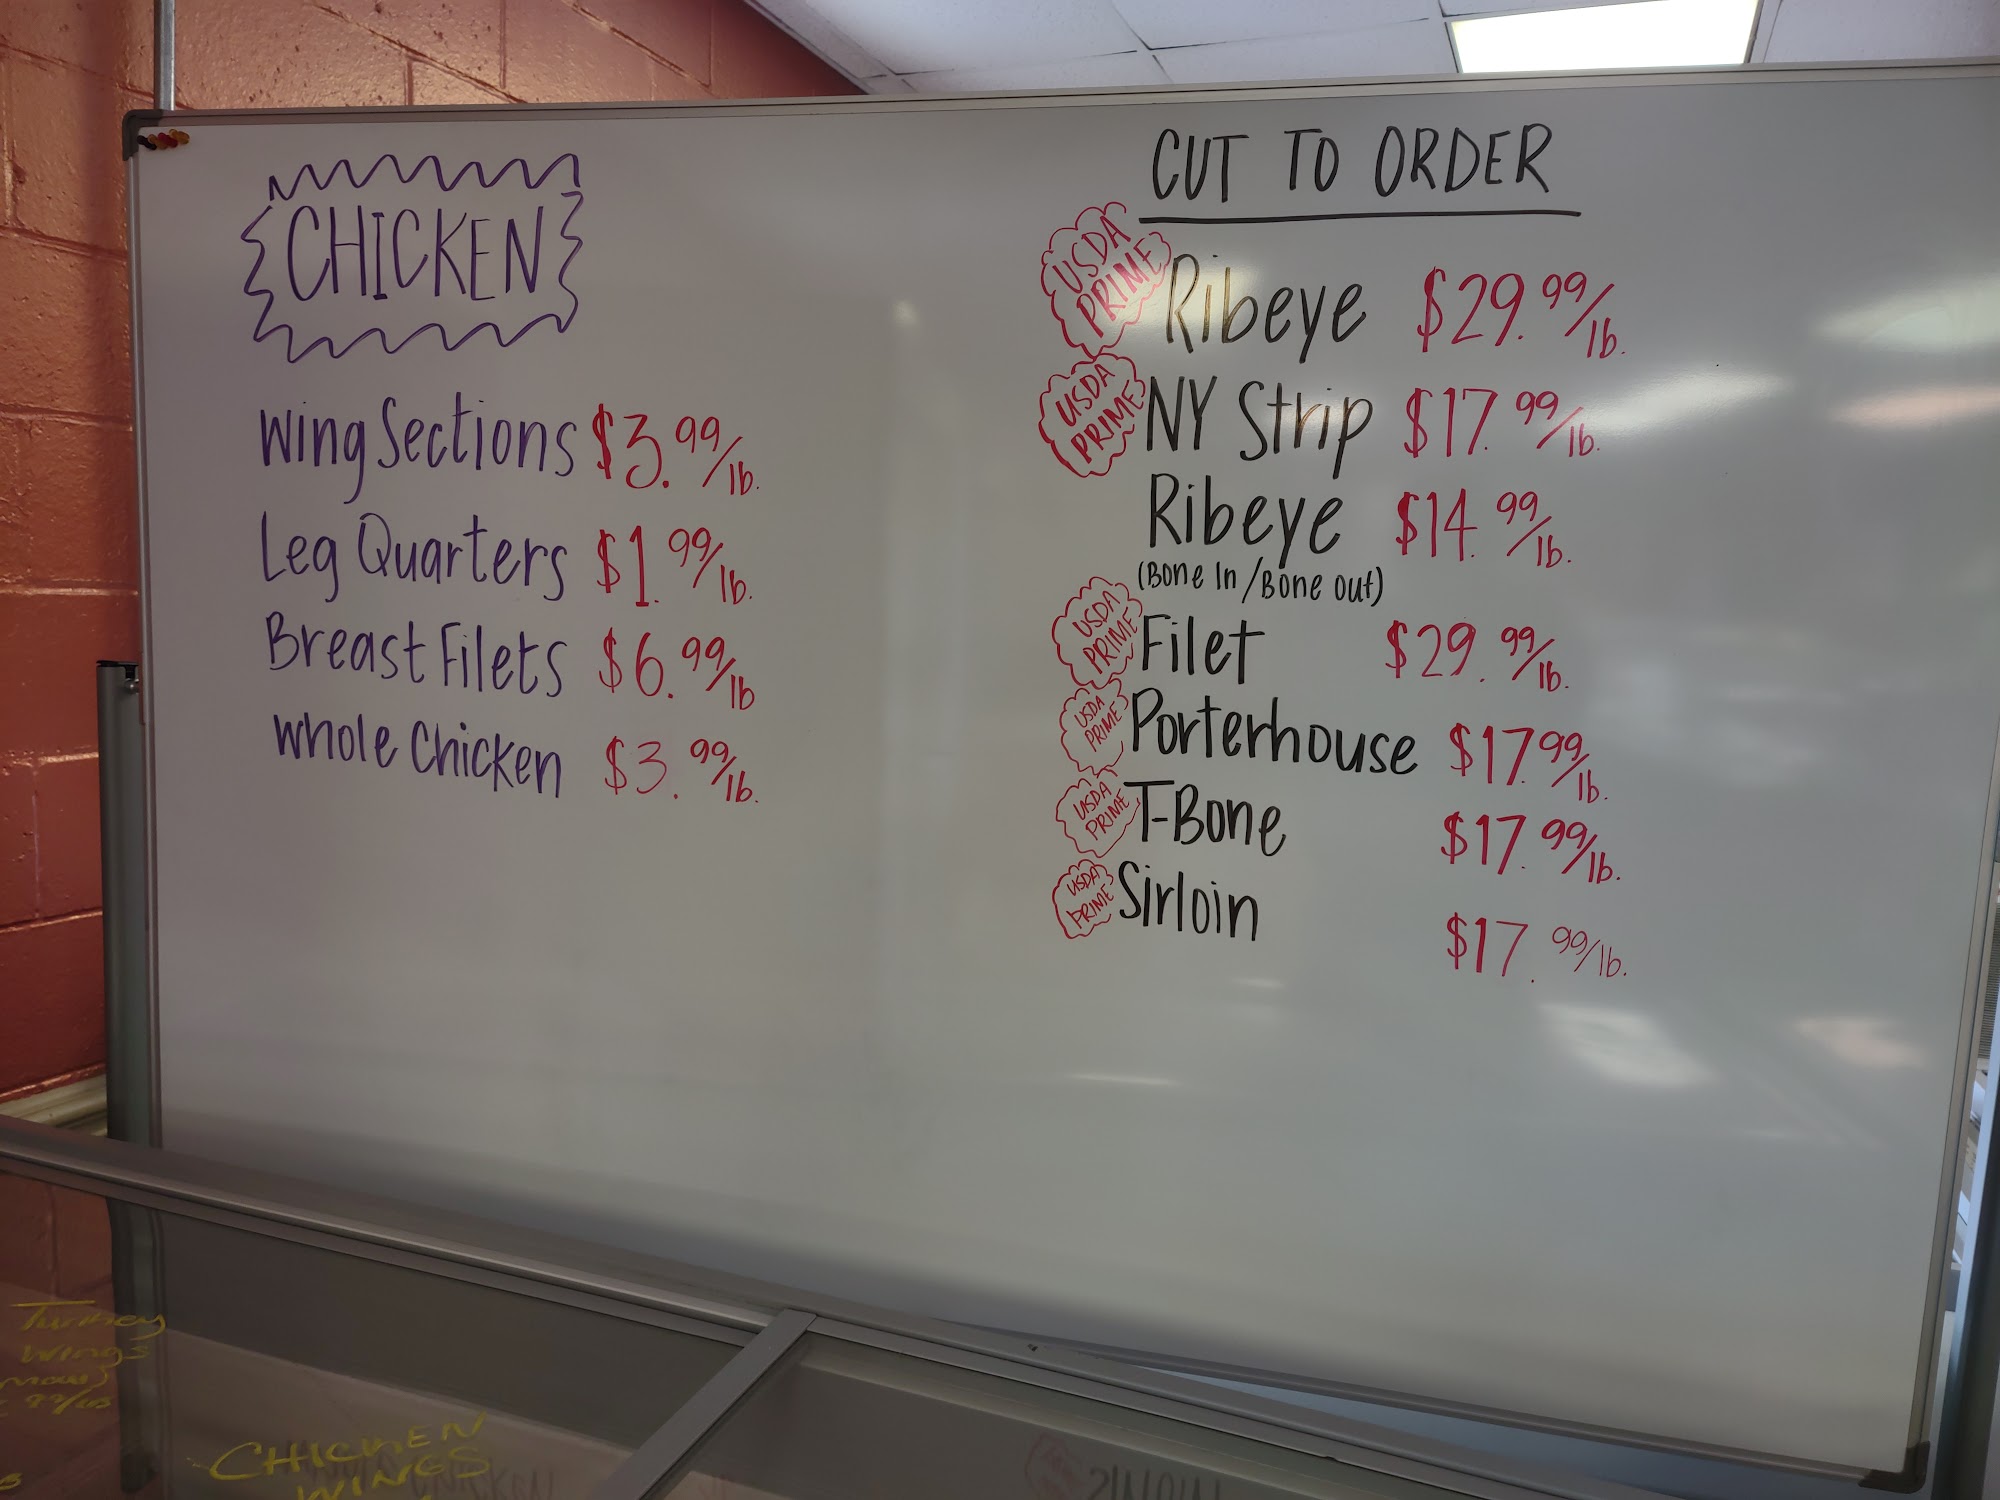 CHICKEN
Wing Sections $3.99/lb.
Leg Quarters $1.99/lb.
Breast Filets $6.99/lb
Whole Chicken $3.99/lb.
CUT TO ORDER
USDA PRIME Ribeye $29.99/lb.
USDA PRIME NY Strip $17.99/lb.
Ribeye $14.99/lb.
(Bone In/Bone out)
USDA PRIME Filet $29.99/lb.
USDA PRIME Porterhouse $17.99/lb.
USDA PRIME T-Bone $17.99/lb.
USDA PRIME Sirloin $17.99/lb.
Turkey
Wings
CHICKEN
WINGS